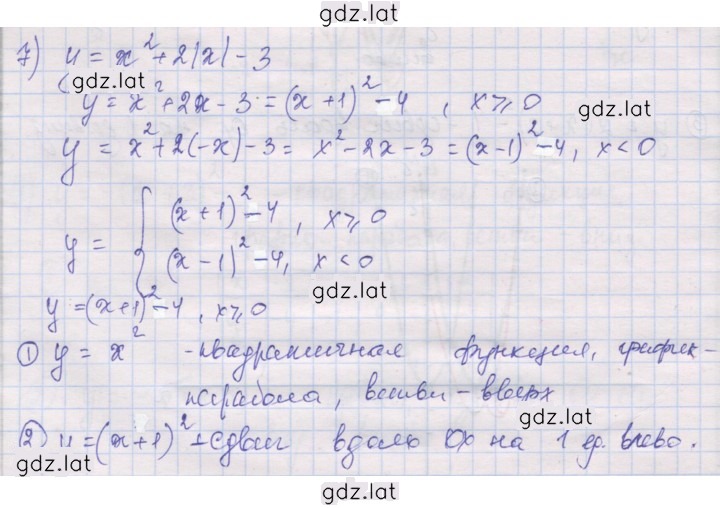 gdz.lat
7) y = x² + 2|x| - 3
gdz.lat
y = x² + 2x - 3 = (x + 1)² - 4 , x ⩾ 0
gdz.lat
y = x² + 2(-x) - 3 = x² - 2x - 3 = (x - 1)² - 4, x < 0
y = { (x + 1)² - 4 , x ⩾ 0
(x - 1)² - 4, x < 0
gdz.lat
y = (x + 1)² - 4 , x ⩾ 0
gdz.lat
① y = x² - квадратичная функция, график -
парабола, ветви - вверх
gdz.lat
② y = (x + 1)² - сдвиг вдоль Ox на 1 ед. влево.
gdz.lat
gdz.lat